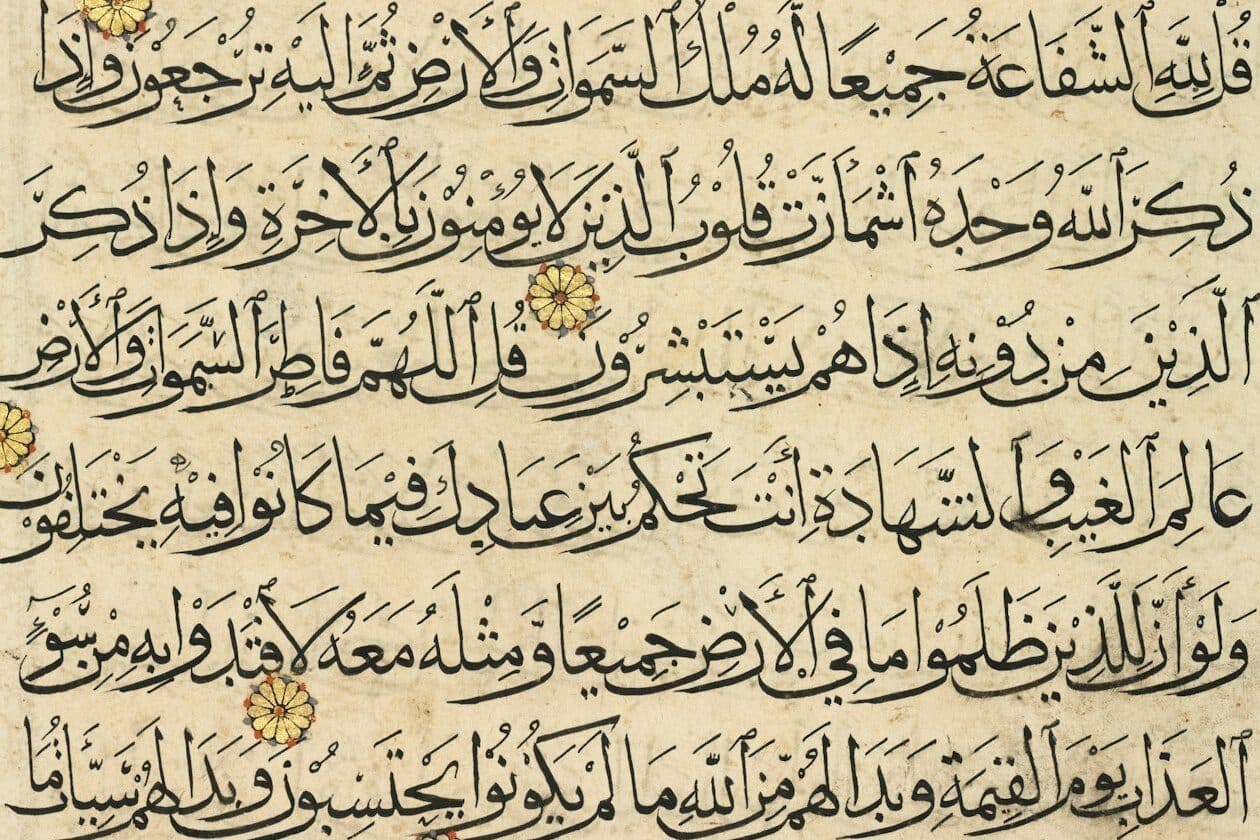 قُلْ لِلَّهِ ٱلشَّفَاعَةُ جَمِيْعًا لَهُ مُلْكُ ٱلسَّمَوَاتِ وَٱلْأَرْضِ ثُمَّ اِلَيْهِ تُرْجَعُونَ وَاِذَا
ذُكِرَ ٱللَّهُ وَحْدَهُ ٱشْمَأَزَّتْ قُلُوْبُ ٱلَّذِيْنَ لَا يُؤْمِنُوْنَ بِٱلْأَخِرَةِ وَاِذَا ذُكِرَ
ٱلَّذِيْنَ مِنْ دُوْنِهِ اِذَا هُمْ يَسْتَبْشِرُوْنَ قُلِ ٱللَّهُمَّ فَاطِرَ ٱلسَّمَوَاتِ وَٱلْأَرْضِ
عَالِمَ ٱلْغَيْبِ وَٱلشَّهَادَةِ أَنْتَ تَحْكُمُ بَيْنَ عِبَادِكَ فِيْمَا كَانُوْا فِيْهِ يَخْتَلِفُوْنَ
وَلَوْ أَنَّ لِلَّذِيْنَ ظَلَمُوْا مَا فِي ٱلْأَرْضِ جَمِيْعًا وَّمِثْلَهُ مَعَهُ لَٱفْتَدَوْا بِهِ مِنْ سُّوْءِ
ٱلْعَذَابِ يَوْمَ ٱلْقِيَمَةِ وَبَدَا لَهُمْ مِّنَ ٱللَّهِ مَا لَمْ يَكُوْنُوْا يَحْتَسِبُوْنَ وَبَدَا لَهُمْ سَيِّأَتُ مَا